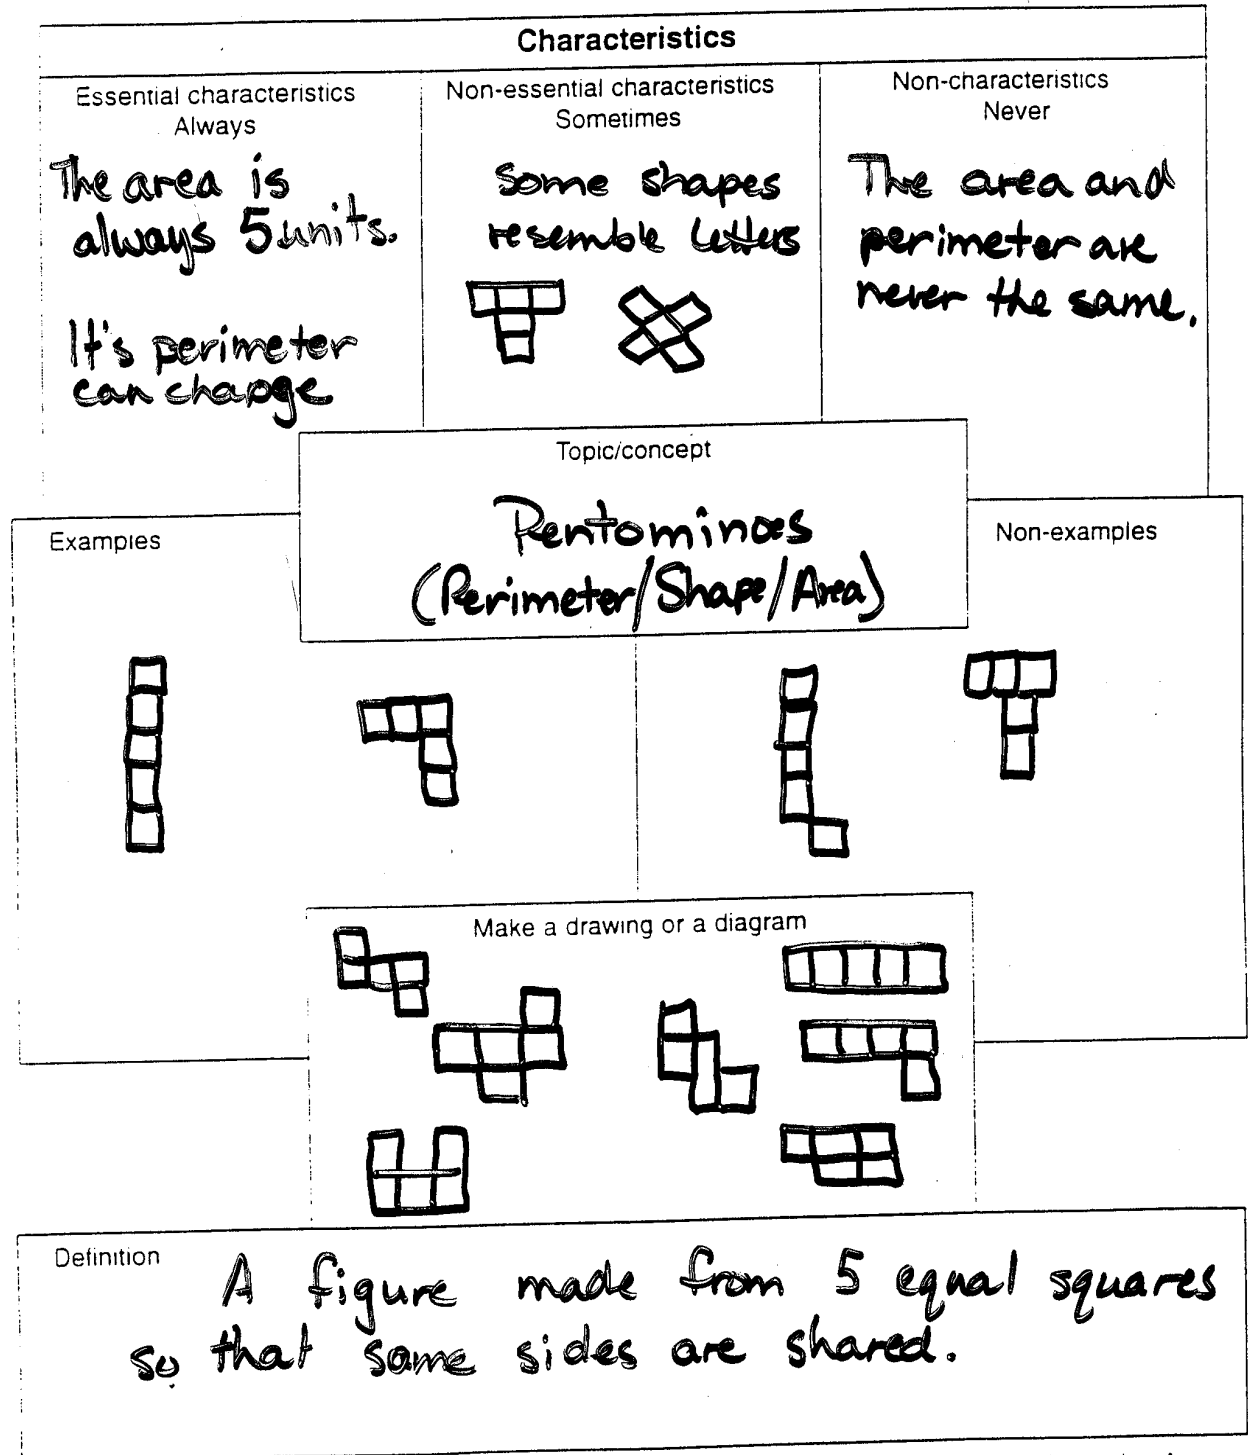 Characteristics
Essential characteristics
Always
The area is
always 5 units.
It's perimeter
can change
Non-essential characteristics
Sometimes
Some shapes
resemble letters
Non-characteristics
Never
The area and
perimeter are
never the same.
Topic/concept
Pentominoes
(Perimeter/Shape/Area)
Examples
Non-examples
Make a drawing or a diagram
Definition
A figure made from 5 equal squares
so that some sides are shared.